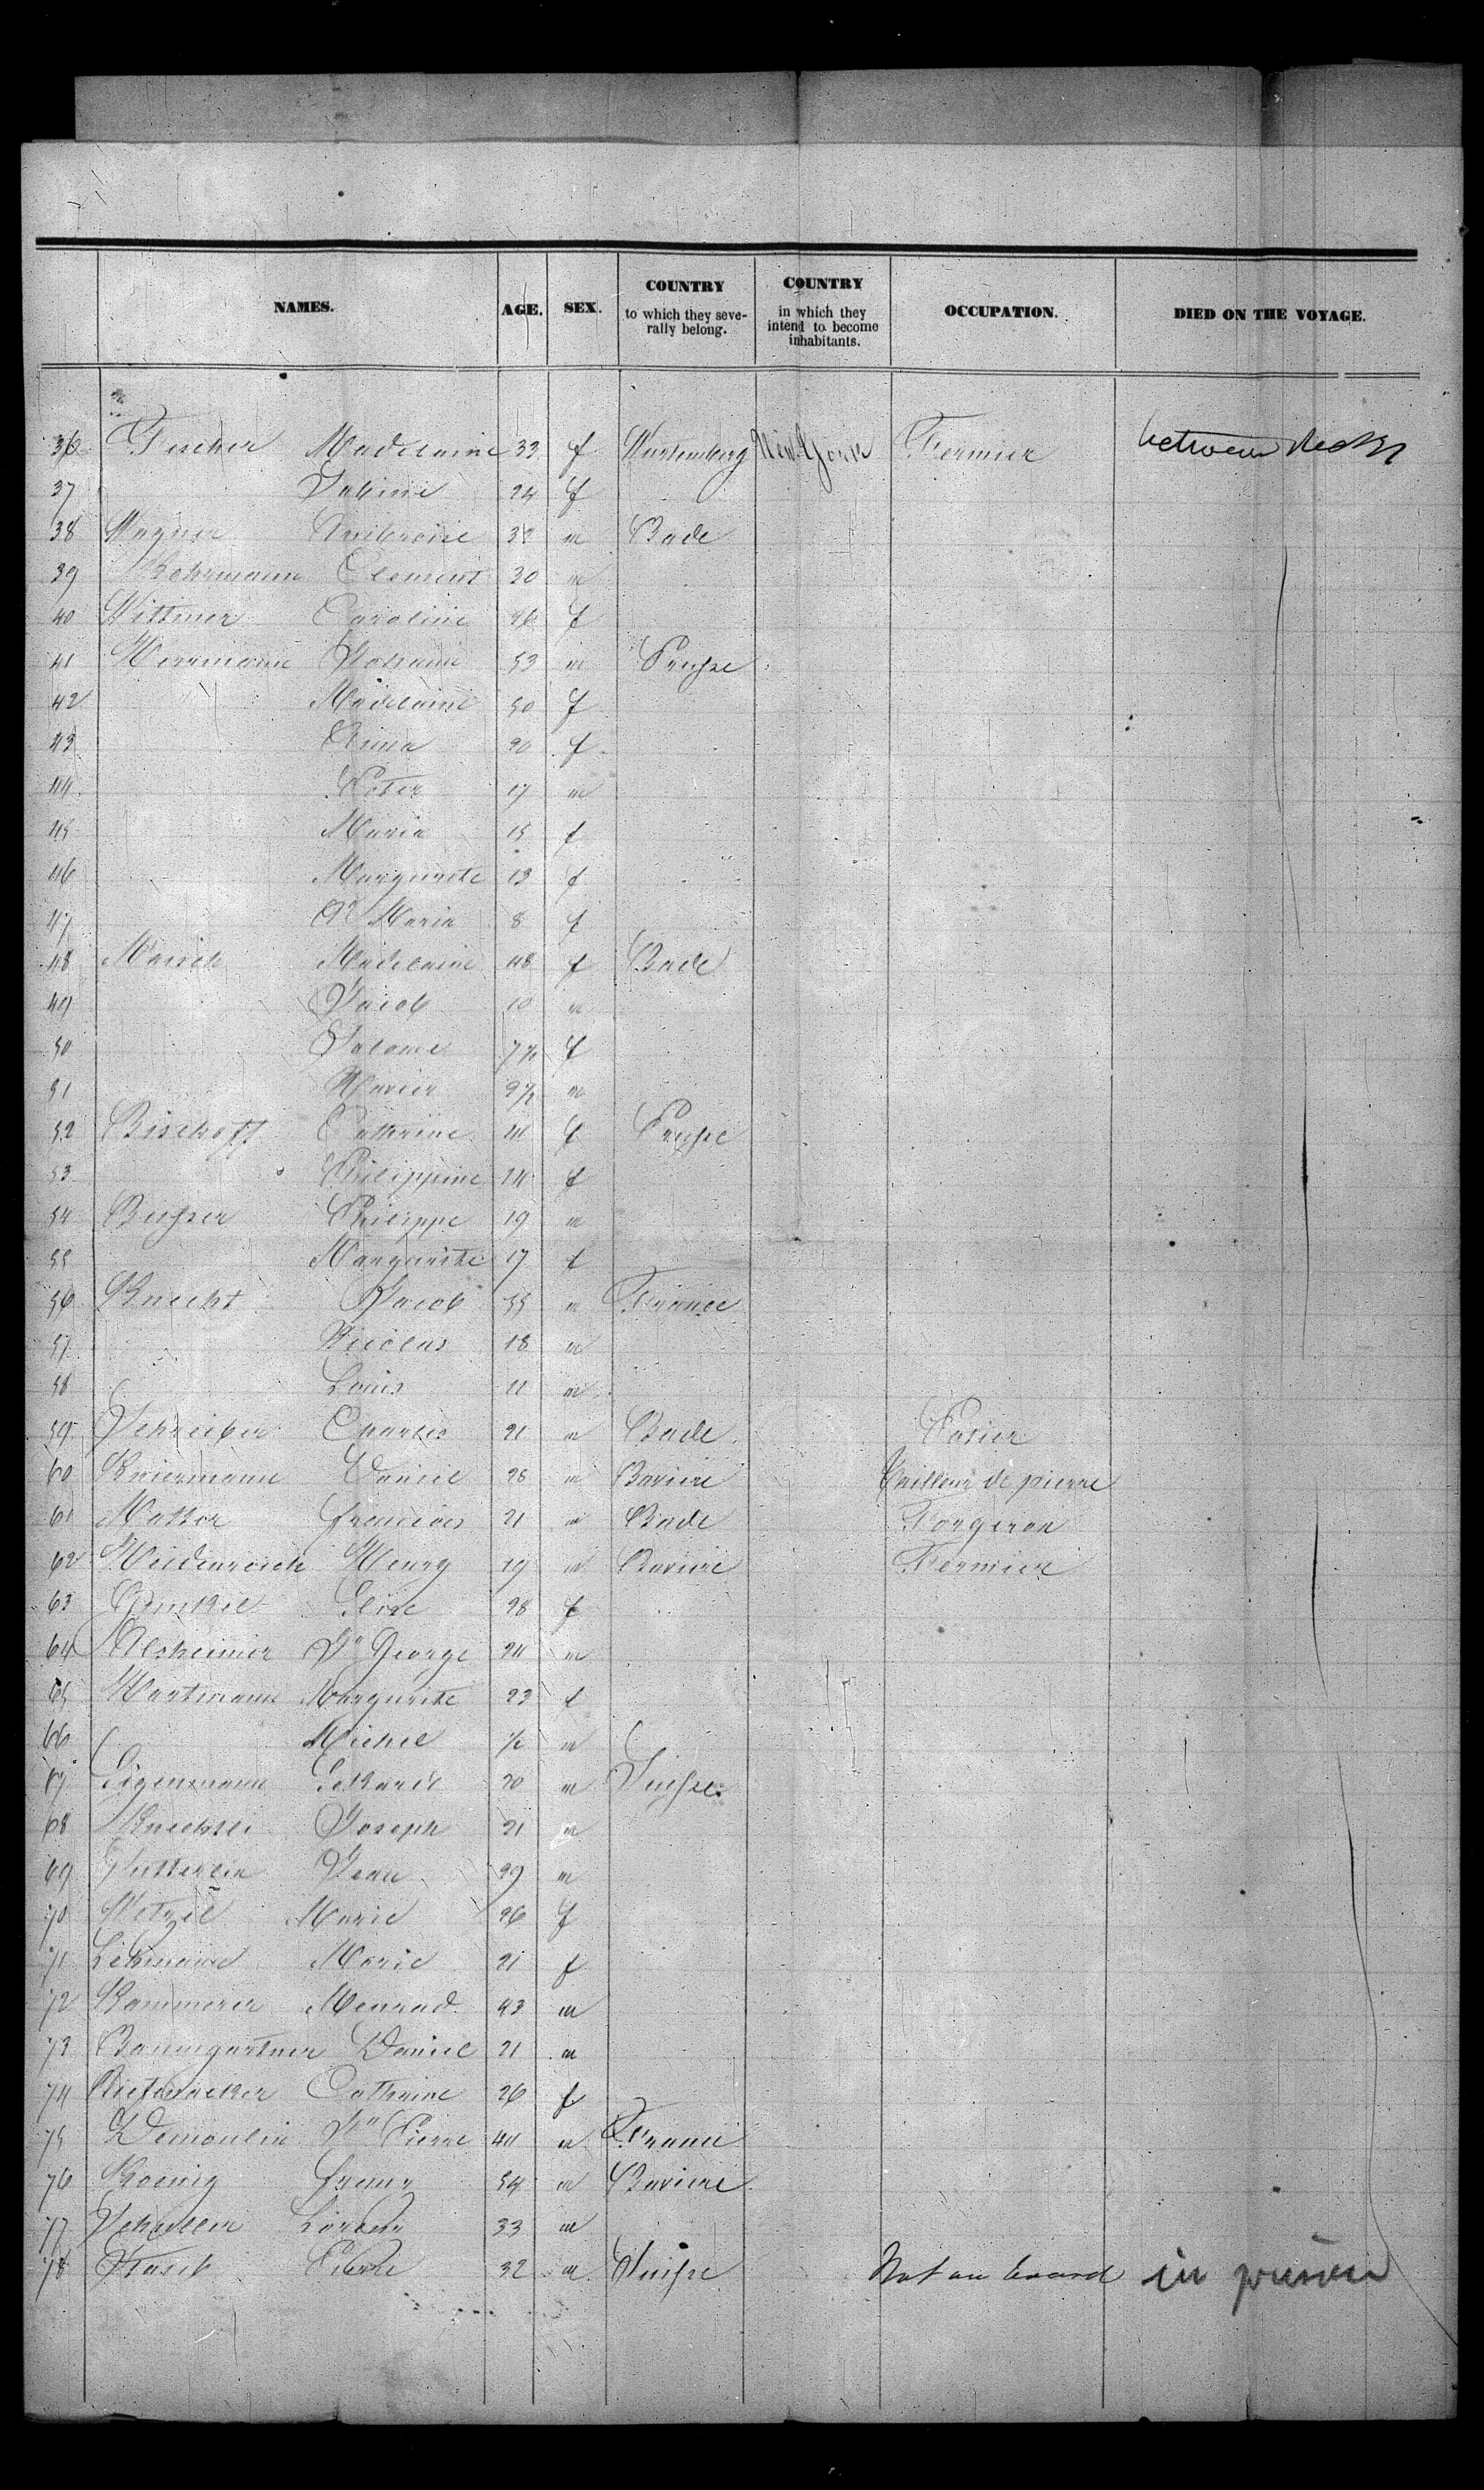 NAMES. AGE. SEX. COUNTRY to which they severally belong. COUNTRY in which they intend to become inhabitants. OCCUPATION. DIED ON THE VOYAGE.
36 Fischer Madelaine 33 f Wurtemberg New York Fermier between decks
37 Sabine 24 f
38 Wagner Ambroise 32 m Bade
39 Clement 30 m
40 Wittmer Caroline 26 f
41 Herrmann Johann 53 m Prusse
42 Madelaine 50 f
43 Anna 20 f
44 Peter 17 m
45 Maria 15 f
46 Marguerite 13 f
47 Aa Maria 8 f
48 Madelaine 48 f Bade
49 Jacob 10 m
50 Salome 7½ f
51 Xavier 2½ m
52 Bischoff Cathrine 41 f Prusse
53 Philippine 14 f
54 Philippe 19 m
55 Marguerite 17 f
56 Knecht Jacob 55 m France
57 Nicolas 18 m
58 Louis 11 m
59 Schreiber Charles 21 m Bade
60 Daniel 28 m Baviere Tailleur de pierre
61 Francois 21 m Bade Forgeron
62 Heidenreich Henry 19 m Baviere Fermier
63 Kunkel Elise 28 f
64 Alsheimer Jn George 24 m
65 Hartmann Marguerite 23 f
66 Michel ½ m
67 Eigenmann Gebhard 20 m Suisse
68 Joseph 21 m
69 Sutterlin Jean 29 m
70 Wetzel Marie 26 f
71 Lehmann Marie 21 f
72 Kammerer Menrad 43 m
73 Baumgartner Daniel 21 m
74 Cathrine 26 f
75 Demoulin Jn Pierre 44 m France
76 Koenig Franz 54 m Baviere
77 Schuller Lorenz 33 m
78 Pierre 32 m Suisse Not on board in prison